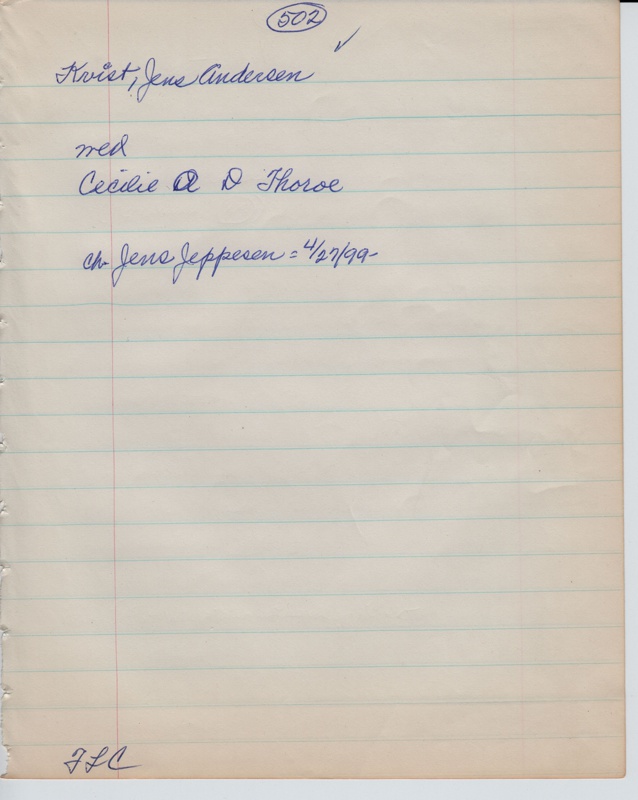 502
Kvist, Jens Andersen
wed
Cecilie A D Thoroe
ch Jens Jeppesen = 4/27/99-
FLC